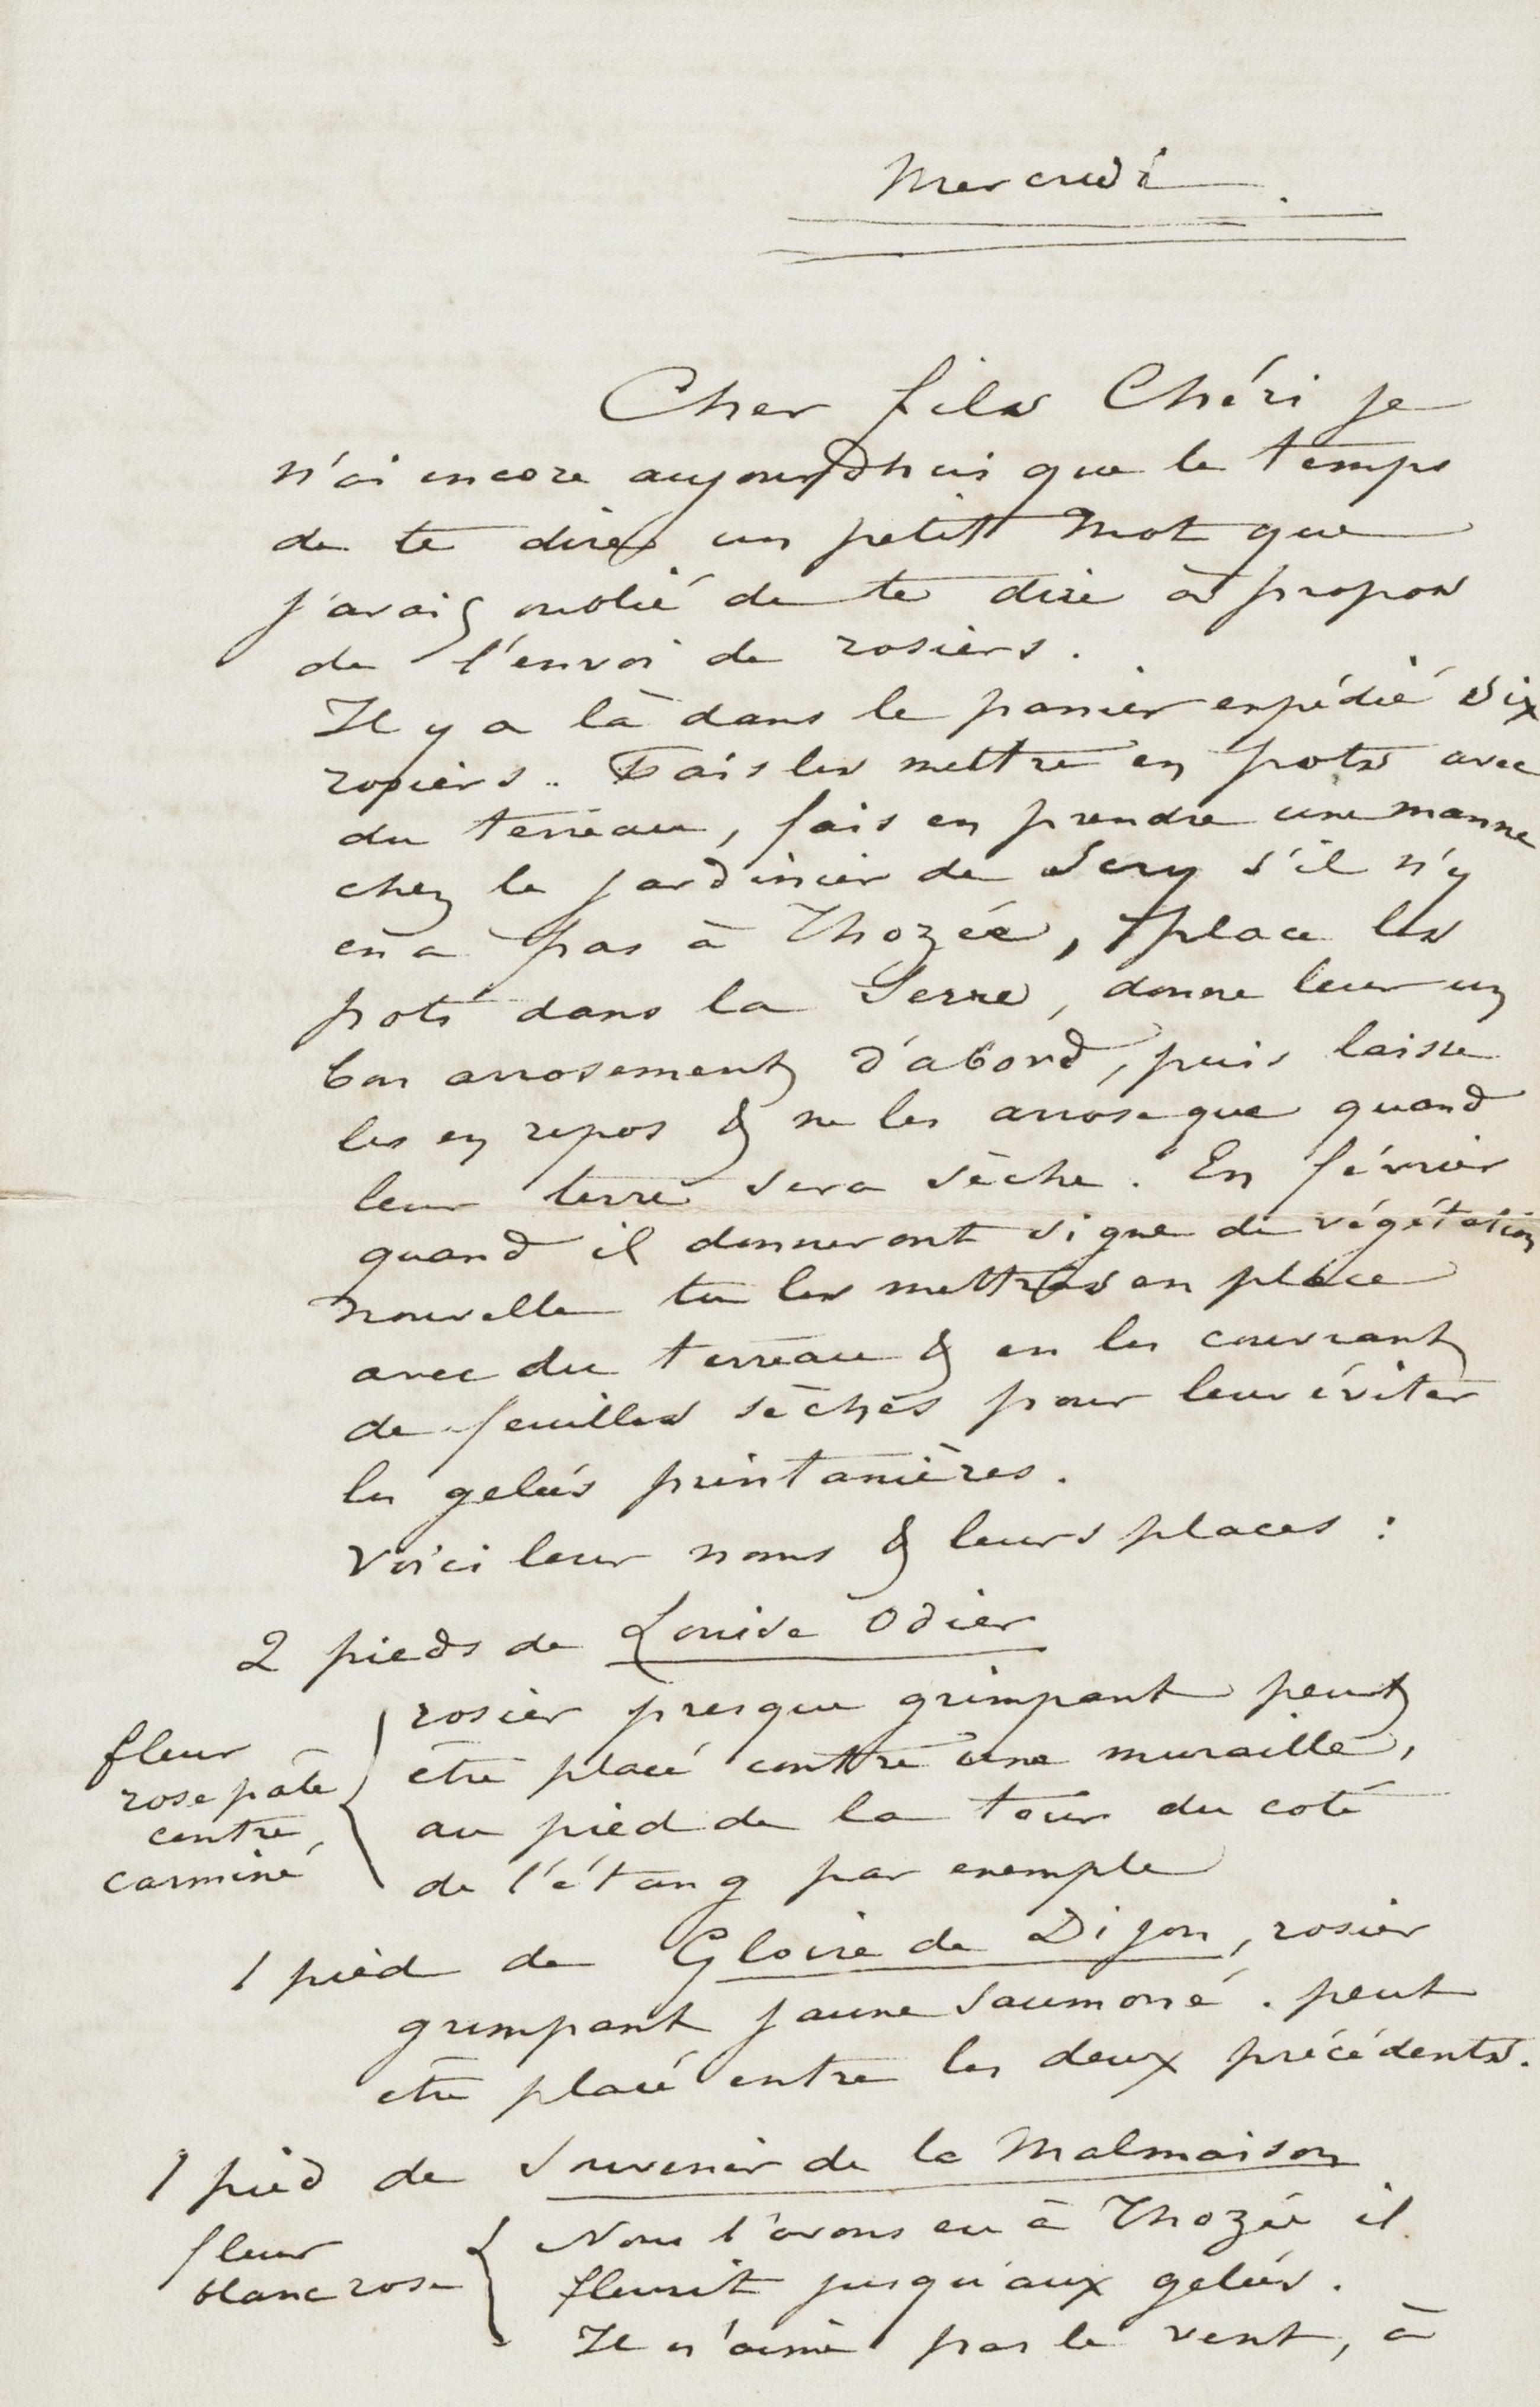 Mercredi.
Cher fils Chéri je
n'ai encore aujourd'hui que le temps
de te dire un petit mot que
j'avais oublié de te dire à propos
de l'envoi de rosiers.
Il y a là dans le panier expédié six
rosiers.. Fais les mettre en pots avec
du terreau, fais en prendre une manne
chez le jardinier de Scry s'il n'y
en a pas à Thozée, place les
pots dans la Serre, donne leur un
bon arrosement d'abord, puis laisse
les en repos & ne les arrose que quand
leur terre sera sèche. En février
quand il donneront signe de végétation
nouvelle tu les mettras en place
avec du terreau & en les couvrant
de feuilles sèches pour leur éviter
les gelées printanières.
Voici leur noms & leurs places :
2 pieds de Louise Odier
rosier presque grimpant peut
être placé contre une muraille,
au pied de la tour du coté
de l'étang par exemple
fleur
rose pâle
centre
carminé
1 pied de Gloire de Dijon, rosier
grimpant jaune saumoné. peut
etre placé entre les deux précédents.
1 pied de Souvenir de la Malmaison
fleur
blanc rose
Nous l'avons eu à Thozée il
fleurit jusqu'aux gelées.
Il n'aime pas le vent, à